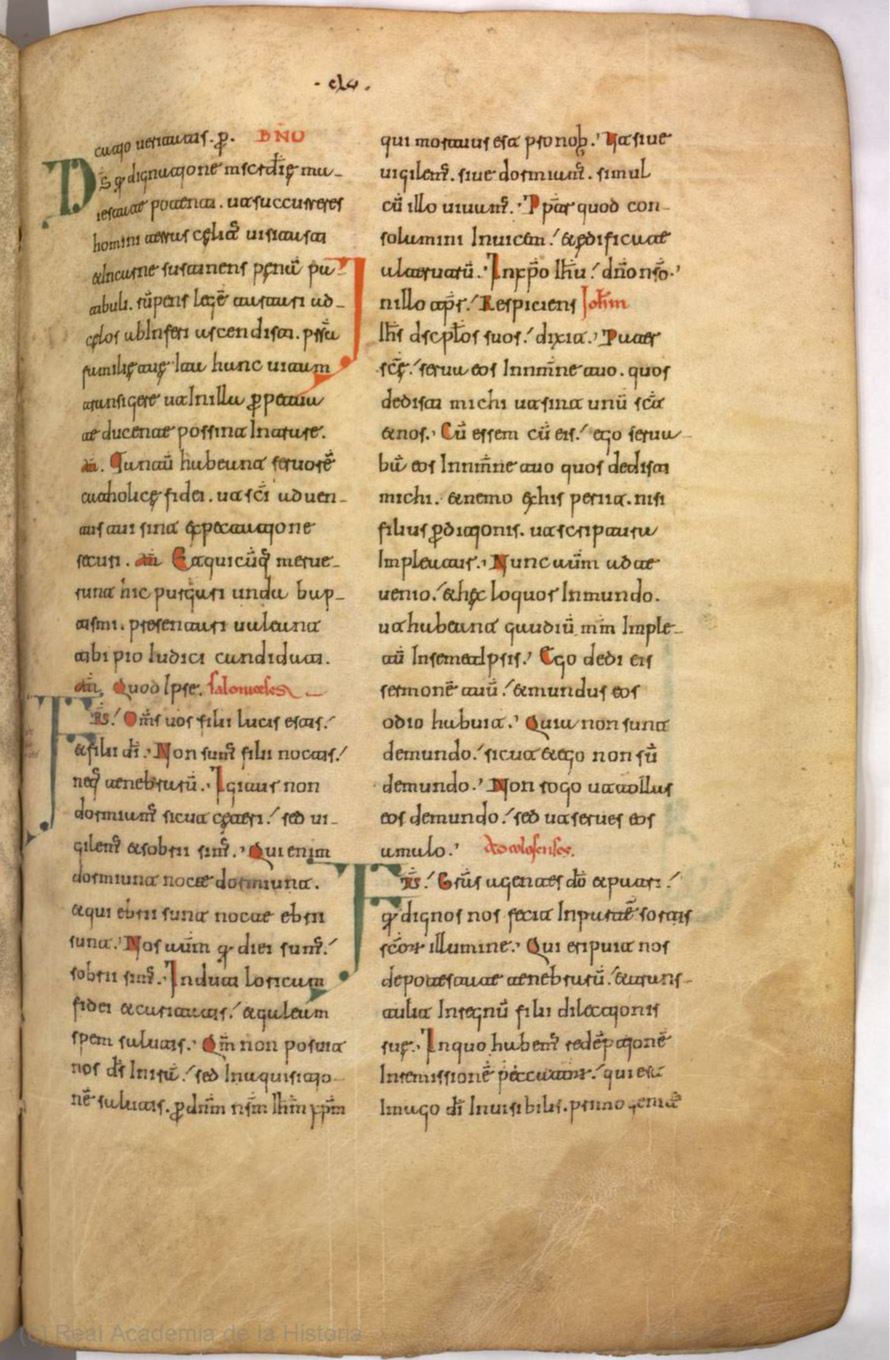 · clv ·
catio ueritatis. p̄. BNO
Ds̄ q̄ dignatione mscrdię ma-
iestate potenti. ut succurreres
homini cęlit᷒ uisitasti
et In carne sustinens pęnā pa-
tibuli. legē ad-
cęlos ab Inferi ascendisti. pssta
familię tuę Ita hunc uitam
transigere ut In illa p̄petua
te ducente possint Intrare.
am̄. habeant feruorē
catholicę fidei. ut sc̄i aduen-
tus tui sint expectatione
securi. am̄ Et quicūq; merue-
runt hic purgari unda bap-
tismi. presentari ualeant
tibi pio Iudici candidati.
am̄. Quod Ipse. salonicēses
Frs̄: Om̄s uos filii lucis estis:
et filii dī. Non sum᷒ filii noctis:
neq; tenebrarū. Igitur non
dormiam᷒ sicut cęteri: sed ui-
gilem᷒ et sobrii sim᷒. Qui enim
dormiunt nocte dormiunt.
et qui ebrii sunt nocte ebrii
sunt. Nos autm̄ q̄ diei sum᷒:
sobrii sim᷒. Induti loricam
fidei et caritatis: et galeam
spem salutis. Qm̄ non posuit
nos dš In irā: sed In aquisitio-
nē salutis. p̄ dnm̄ nsm̄ Ihm̄ xpm̄
qui mortuus est pro nob.: Ut siue
uigilem᷒. siue dormiam᷒. simul
cū illo uiuam᷒. Ppter quod con-
solamini Inuicem: et ędificate
alterutrū. In xp̄o Ihū: dn̄o nr̄o.
In illo tp̄r. Respiciens Joh̄m
Ihs̄ dscpl̄os suos: dixit. Pater
sc̄ę: serua eos In nm̄ne tuo. quos
dedisti michi ut sint unū sct̄
et nos. Cū essem cū eis: ego serua-
bā eos In nm̄ne tuo quos dedisti
michi. et nemo ex his periit. nisi
filius p̄ditionis. ut scriptura
Impleatur. Nunc autm̄ ad te
uenio: et hęc loquor In mundo.
ut habeant gaudiū mm̄ Imple-
tū In semetIpsis. Ego dedi eis
sermonē tuū: et mundus eos
odio habuit. Quia non sunt
de mundo: sicut et ego non sū
de mundo. Non rogo ut tollas
eos de mundo: sed ut serues eos
a malo. Ad colosenses.
Frs̄: Grās agentes dō et patri:
q̄ dignos nos fecit In partē sortis
sc̄or illumine. Qui eripuit nos
de potestate tenebrarū. et trans-
tulit In regnū filii dilectionis
suę. In quo habem᷒ redēptionē
In remissionē peccator: qui est
Imago dī Inuisibilis. primogenit᷒
(c) Real Academia de la Historia